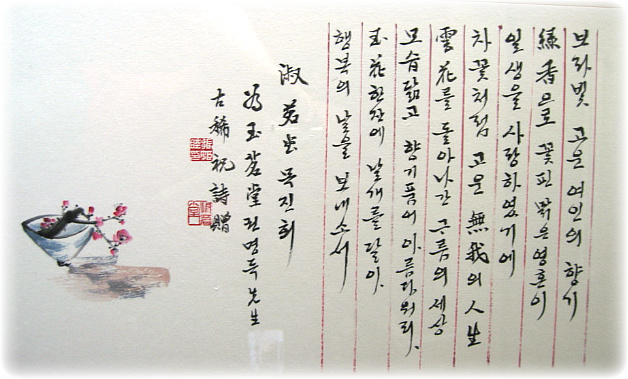 보라빛 고운 여인의 향기
綠香으로 꽃핀 맑은영혼이
일생을 사랑하였기에
차꽃처럼 고운 無我의 人生
雲花를 돌아나간 구름의 세상
모습닮고 향기품어 아름다워라.
玉花한잔에 날개를 달아.
행복의 날을 보내소서
淑茗堂 목진희
為玉茗堂전명득先生
古稀祝詩贈